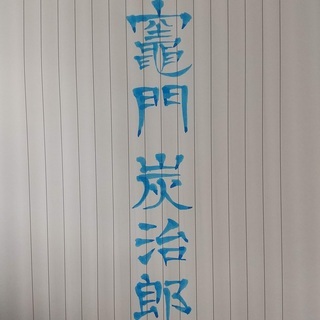 竈門 炭治郎